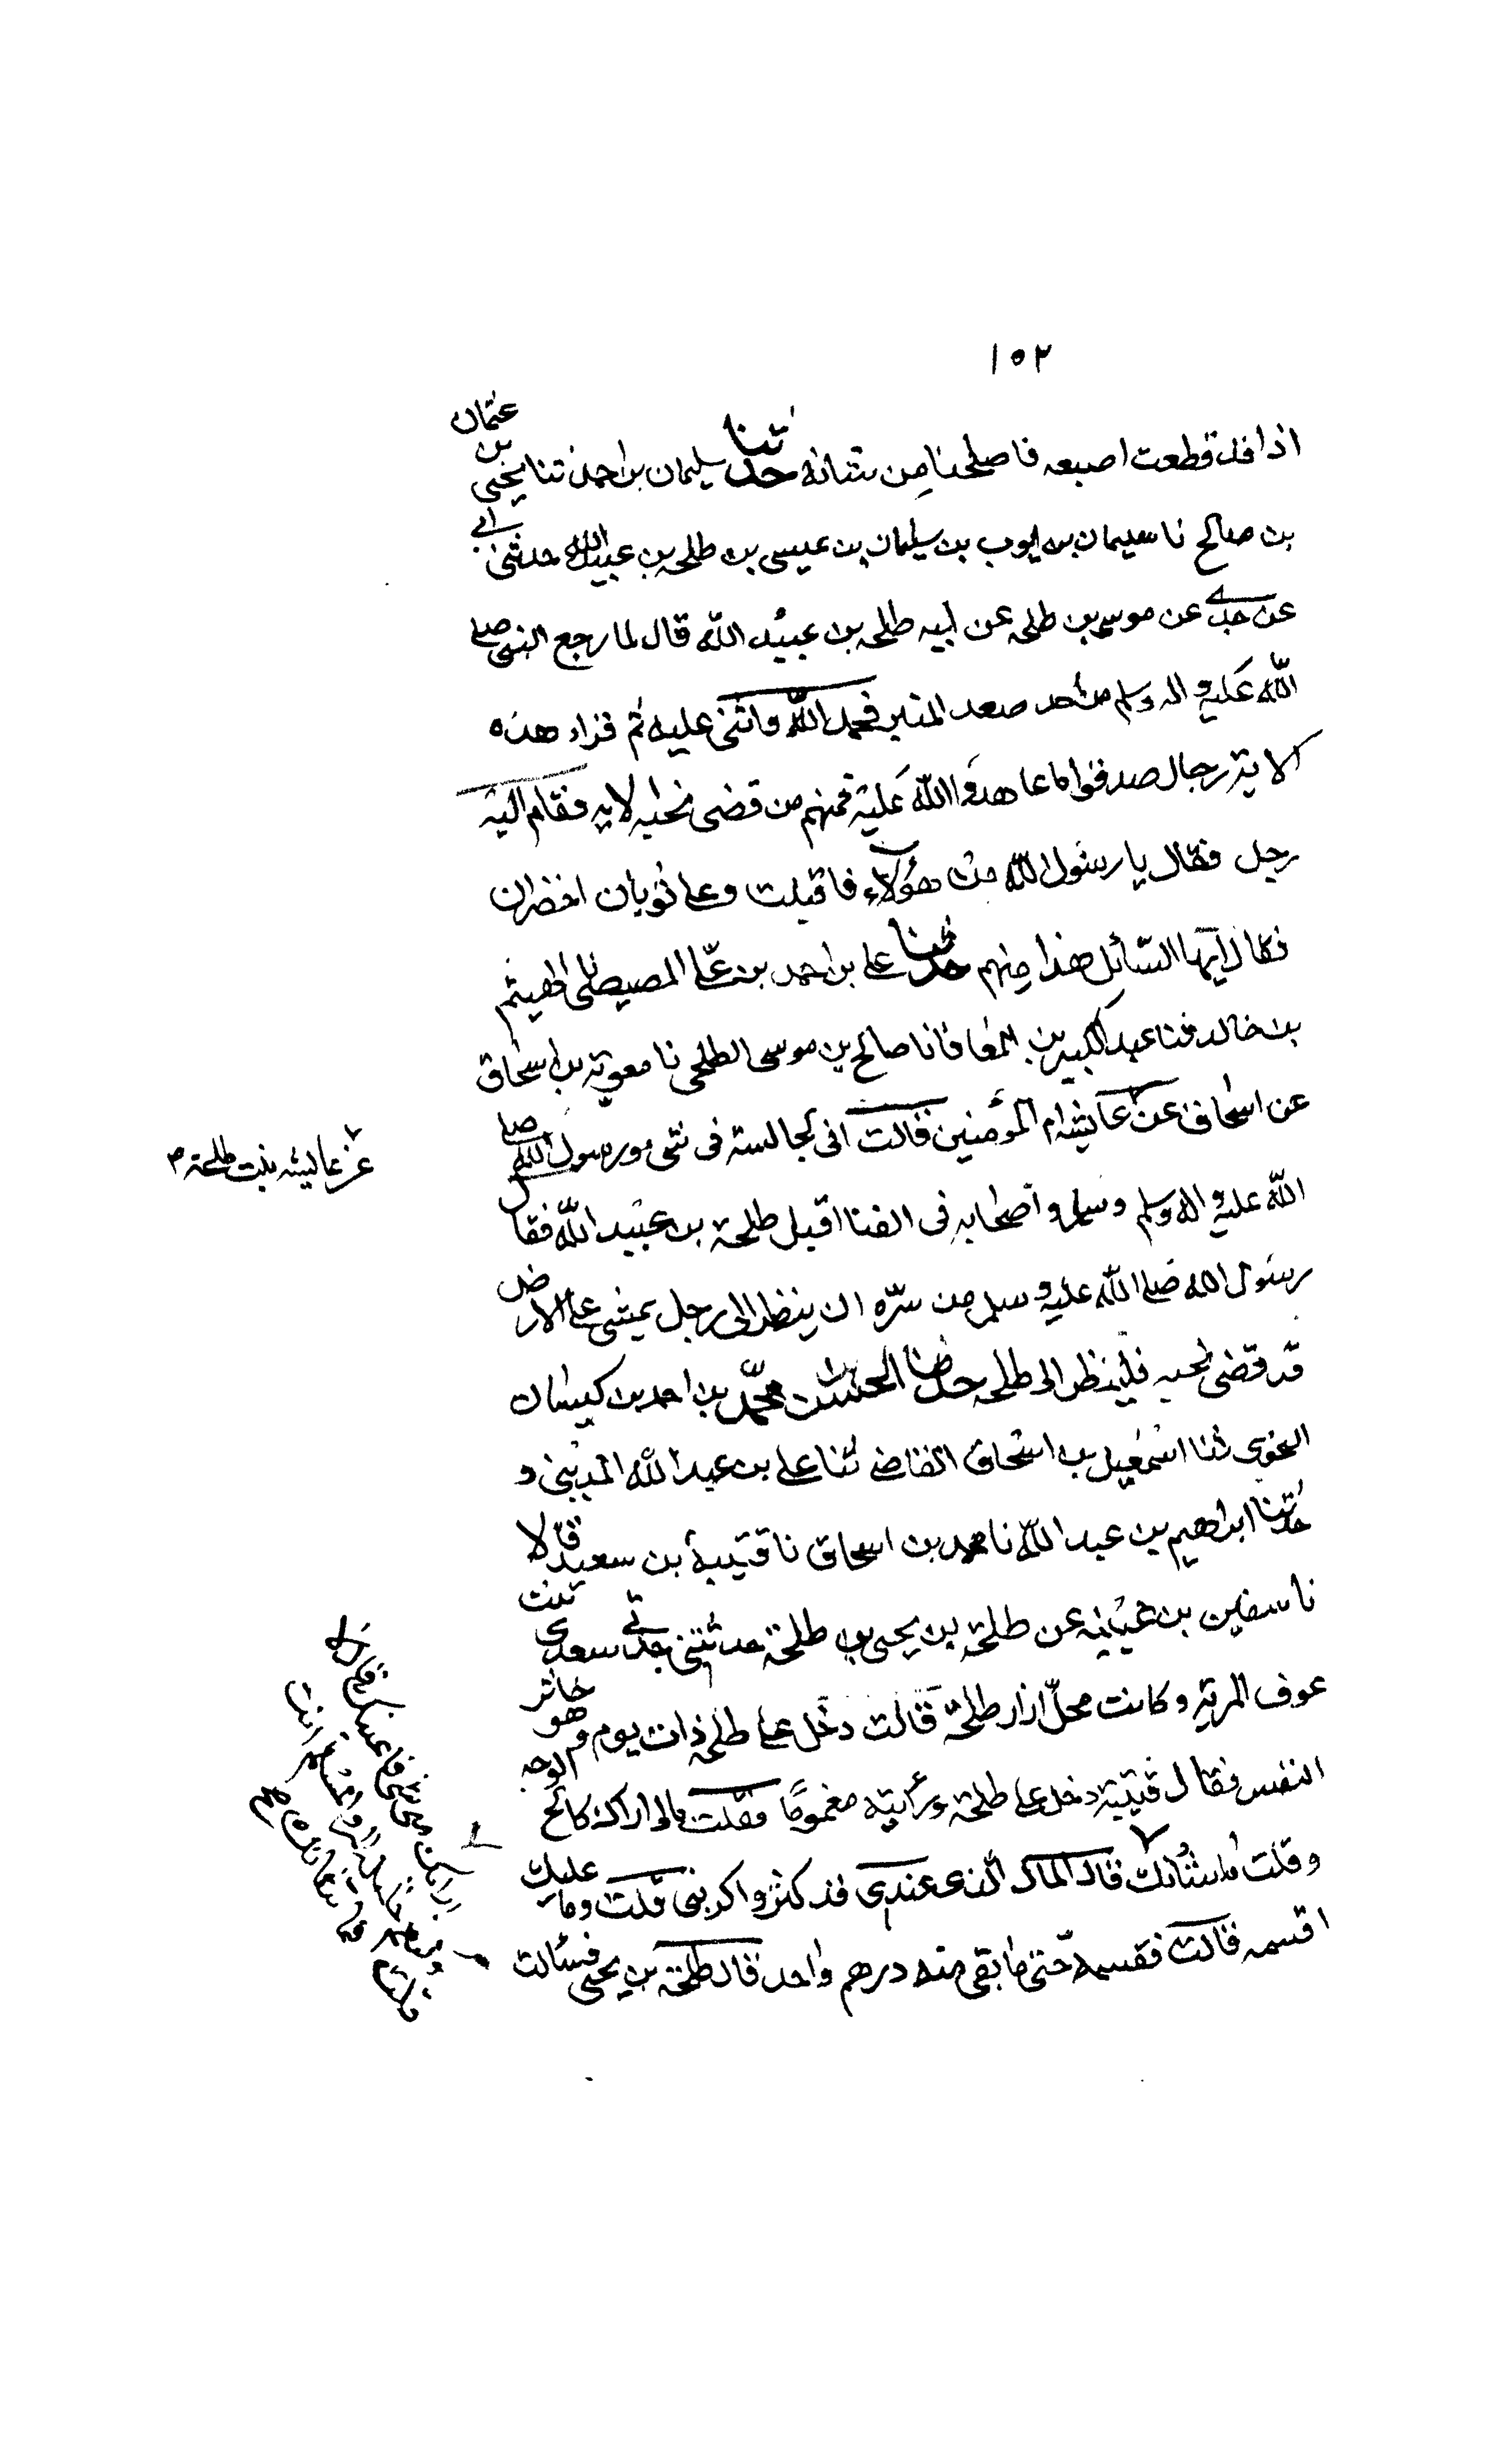 ١٥٢
اذا قد قطعت اصبعه فاصلحنا من شانه حدثنا سليمان بن احمد ثنا يحيى بن عثمان
بن صالح نا سليمان بن ايوب بن سليمان بن عيسى بن طلحه بن عبيد الله حدثني ابي
عن جدي عن موسى بن طلحه عن ابيه طلحه بن عبيد الله قال لما رجع النبي صلى
الله عليه واله وسلم من احد صعد المنبر فحمد الله واثنى عليه ثم قراء هذه
الاية رجال صدقوا ما عاهدوا الله عليه فمنهم من قضى نحبه الايه فقام اليه
رجل فقال يا رسول الله من هؤلاء فاقبلت وعلى ثوبان اخضران
فقال ايها السائل هذا منهم حدثنا على بن احمد بن على المصيصى الهيثم
بن خالد ثنا عبد الكبير بن المعافا نا صالح بن موسى الطلحى نا معوية بن اسحاق
عن اسحاق عن عايشه ام المؤمنين قالت انى لجالسة فى بيتى ورسول الله صلى
عن عايشه بنت طلحة م
الله عليه واله وسلم واصحابه فى الفنا اقبل طلحة بن عبيد الله فقال
رسول الله صلى الله عليه وسلم من سرّه ان ينظر الى رجل يمشى على الارض
قد قضى نحبه فلينظر الى طلحه حدثنا الحسن بن محمد بن احمد بن كيسان
النحوى ثنا اسمعيل بن اسحاق القاضى ثنا على بن عبد الله المدينى و
حدثنا ابراهيم بن عبد الله نا محمد بن اسحاق نا قتيبة بن سعيد قالا
نا سفين بن عيينه عن طلحة بن يحيى بن طلحة حدثتنى جدتى سعدى بنت
عوف المرية وكانت محلّ ازار طلحة قالت دخل على طلحة ذات يوم وهو خاثر
النفس فقال قتيبة دخل على طلحة ورأيته مغموما فقلت مالى اراك كالح الوجه
وقلت ما شانك قال المال الذى عندى قد كثر واكربنى قلت وما عليك
اقسمه قالت فقسمه حتى ما بقى منه درهم واحد قال طلحة بن يحيى فسالت